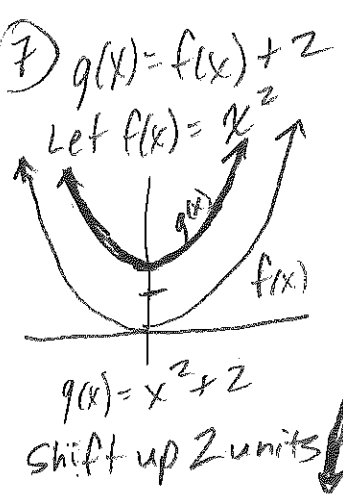 7 g(x) = f(x) + 2
Let f(x) = x²
g(x)
f(x)
g(x) = x² + 2
shift up 2 units